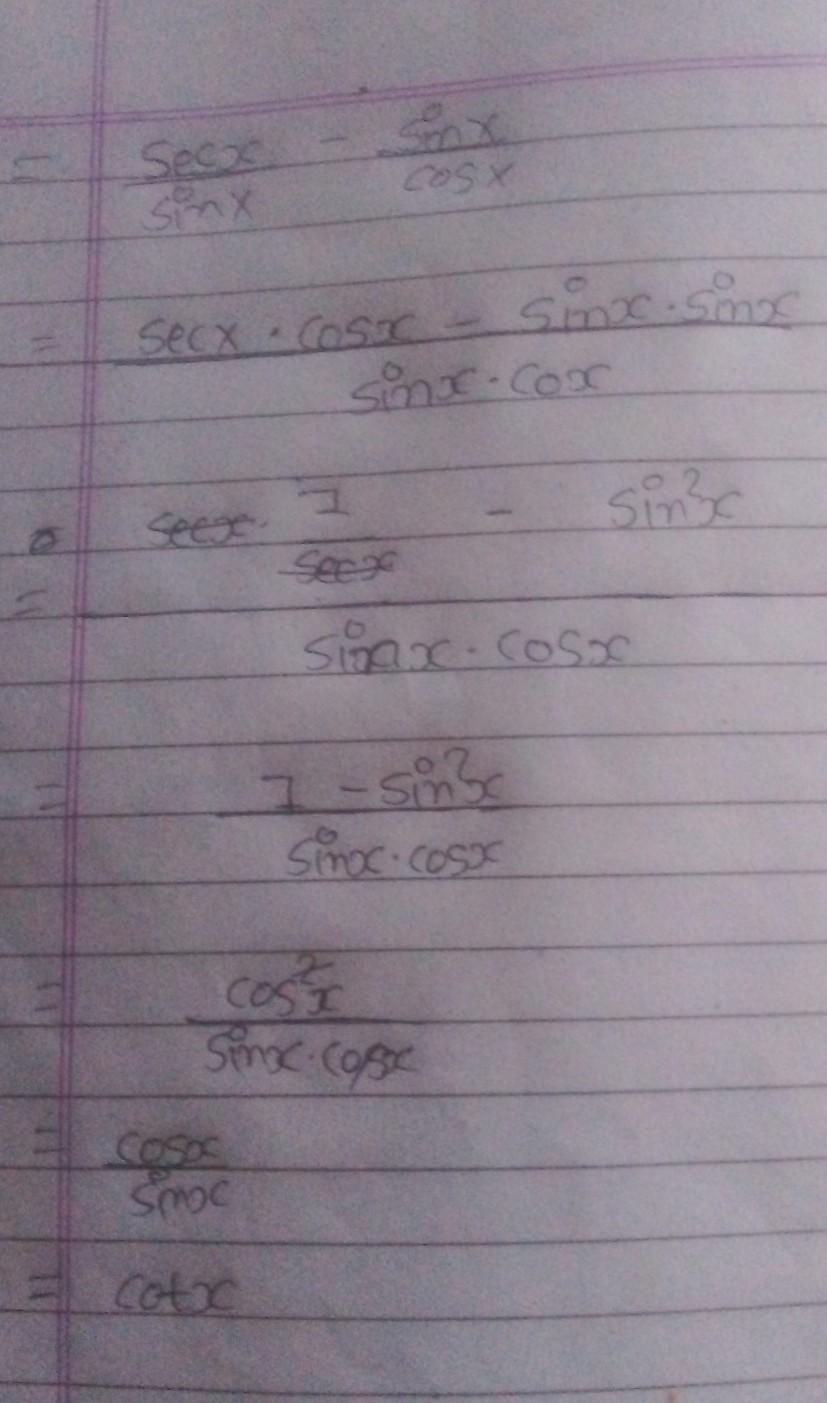 = secx/sinx - sinx/cosx
= secx · cosx - sinx · sinx / sinx · cox
= secx · 1/secx - sin²x / sinx · cosx
= 1 - sin²x / sinx · cosx
= cos²x / sinx · cosx
= cosx / sinx
= cotx